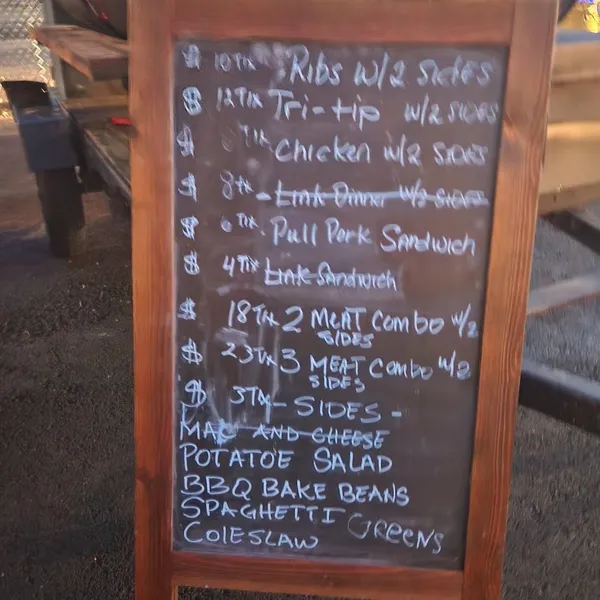 $ 10Tix Ribs W/2 SIDES
$ 12Tix Tri-tip W/2 SIDES
$ Tix chicken W/2 SIDES
$ 8tx - Link Dinner W/2 SIDES
$ 6 Tix. Pull Pork Sandwich
$ 4Tix Link Sandwich
$ 18Tix 2 MEAT Combo W/2
SIDES
$ 23Tix 3 MEAT Combo W/2
SIDES
$ 3Tx - SIDES -
MAC AND CHEESE
POTATOE SALAD
BBQ BAKE BEANS
SPAGHETTI GREENS
COLESLAW